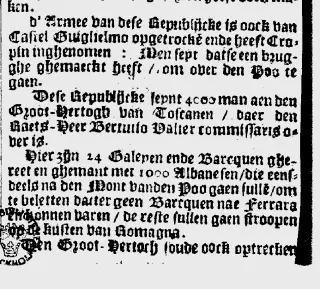 ken.
d' Armee van dese Republijcke is oock van
Castel Guiglielmo opgetrocke ende heeft Cro-
pin inghenomen : Men seyt datse een brug-
ghe ghemaeckt heeft / om over den Poo te
gaen.
Dese Republijcke seynt 4000 man aen den
Groot-Hertogh van Toscanen / daer den
Raets-Heer Bertutio Valier commissaris o-
ver is.
Hier zijn 24 Galeyen ende Barcquen ghe-
reet en ghemant met 1000 Albanesen/die eens-
deels na den Mont vanden Poo gaen sullē/om
te beletten datter geen Barcquen nae Ferrara
en konnen varen / de reste sullen gaen stroopen
op de kusten van Romagna.
Den Groot-Hertoch soude oock optrecken